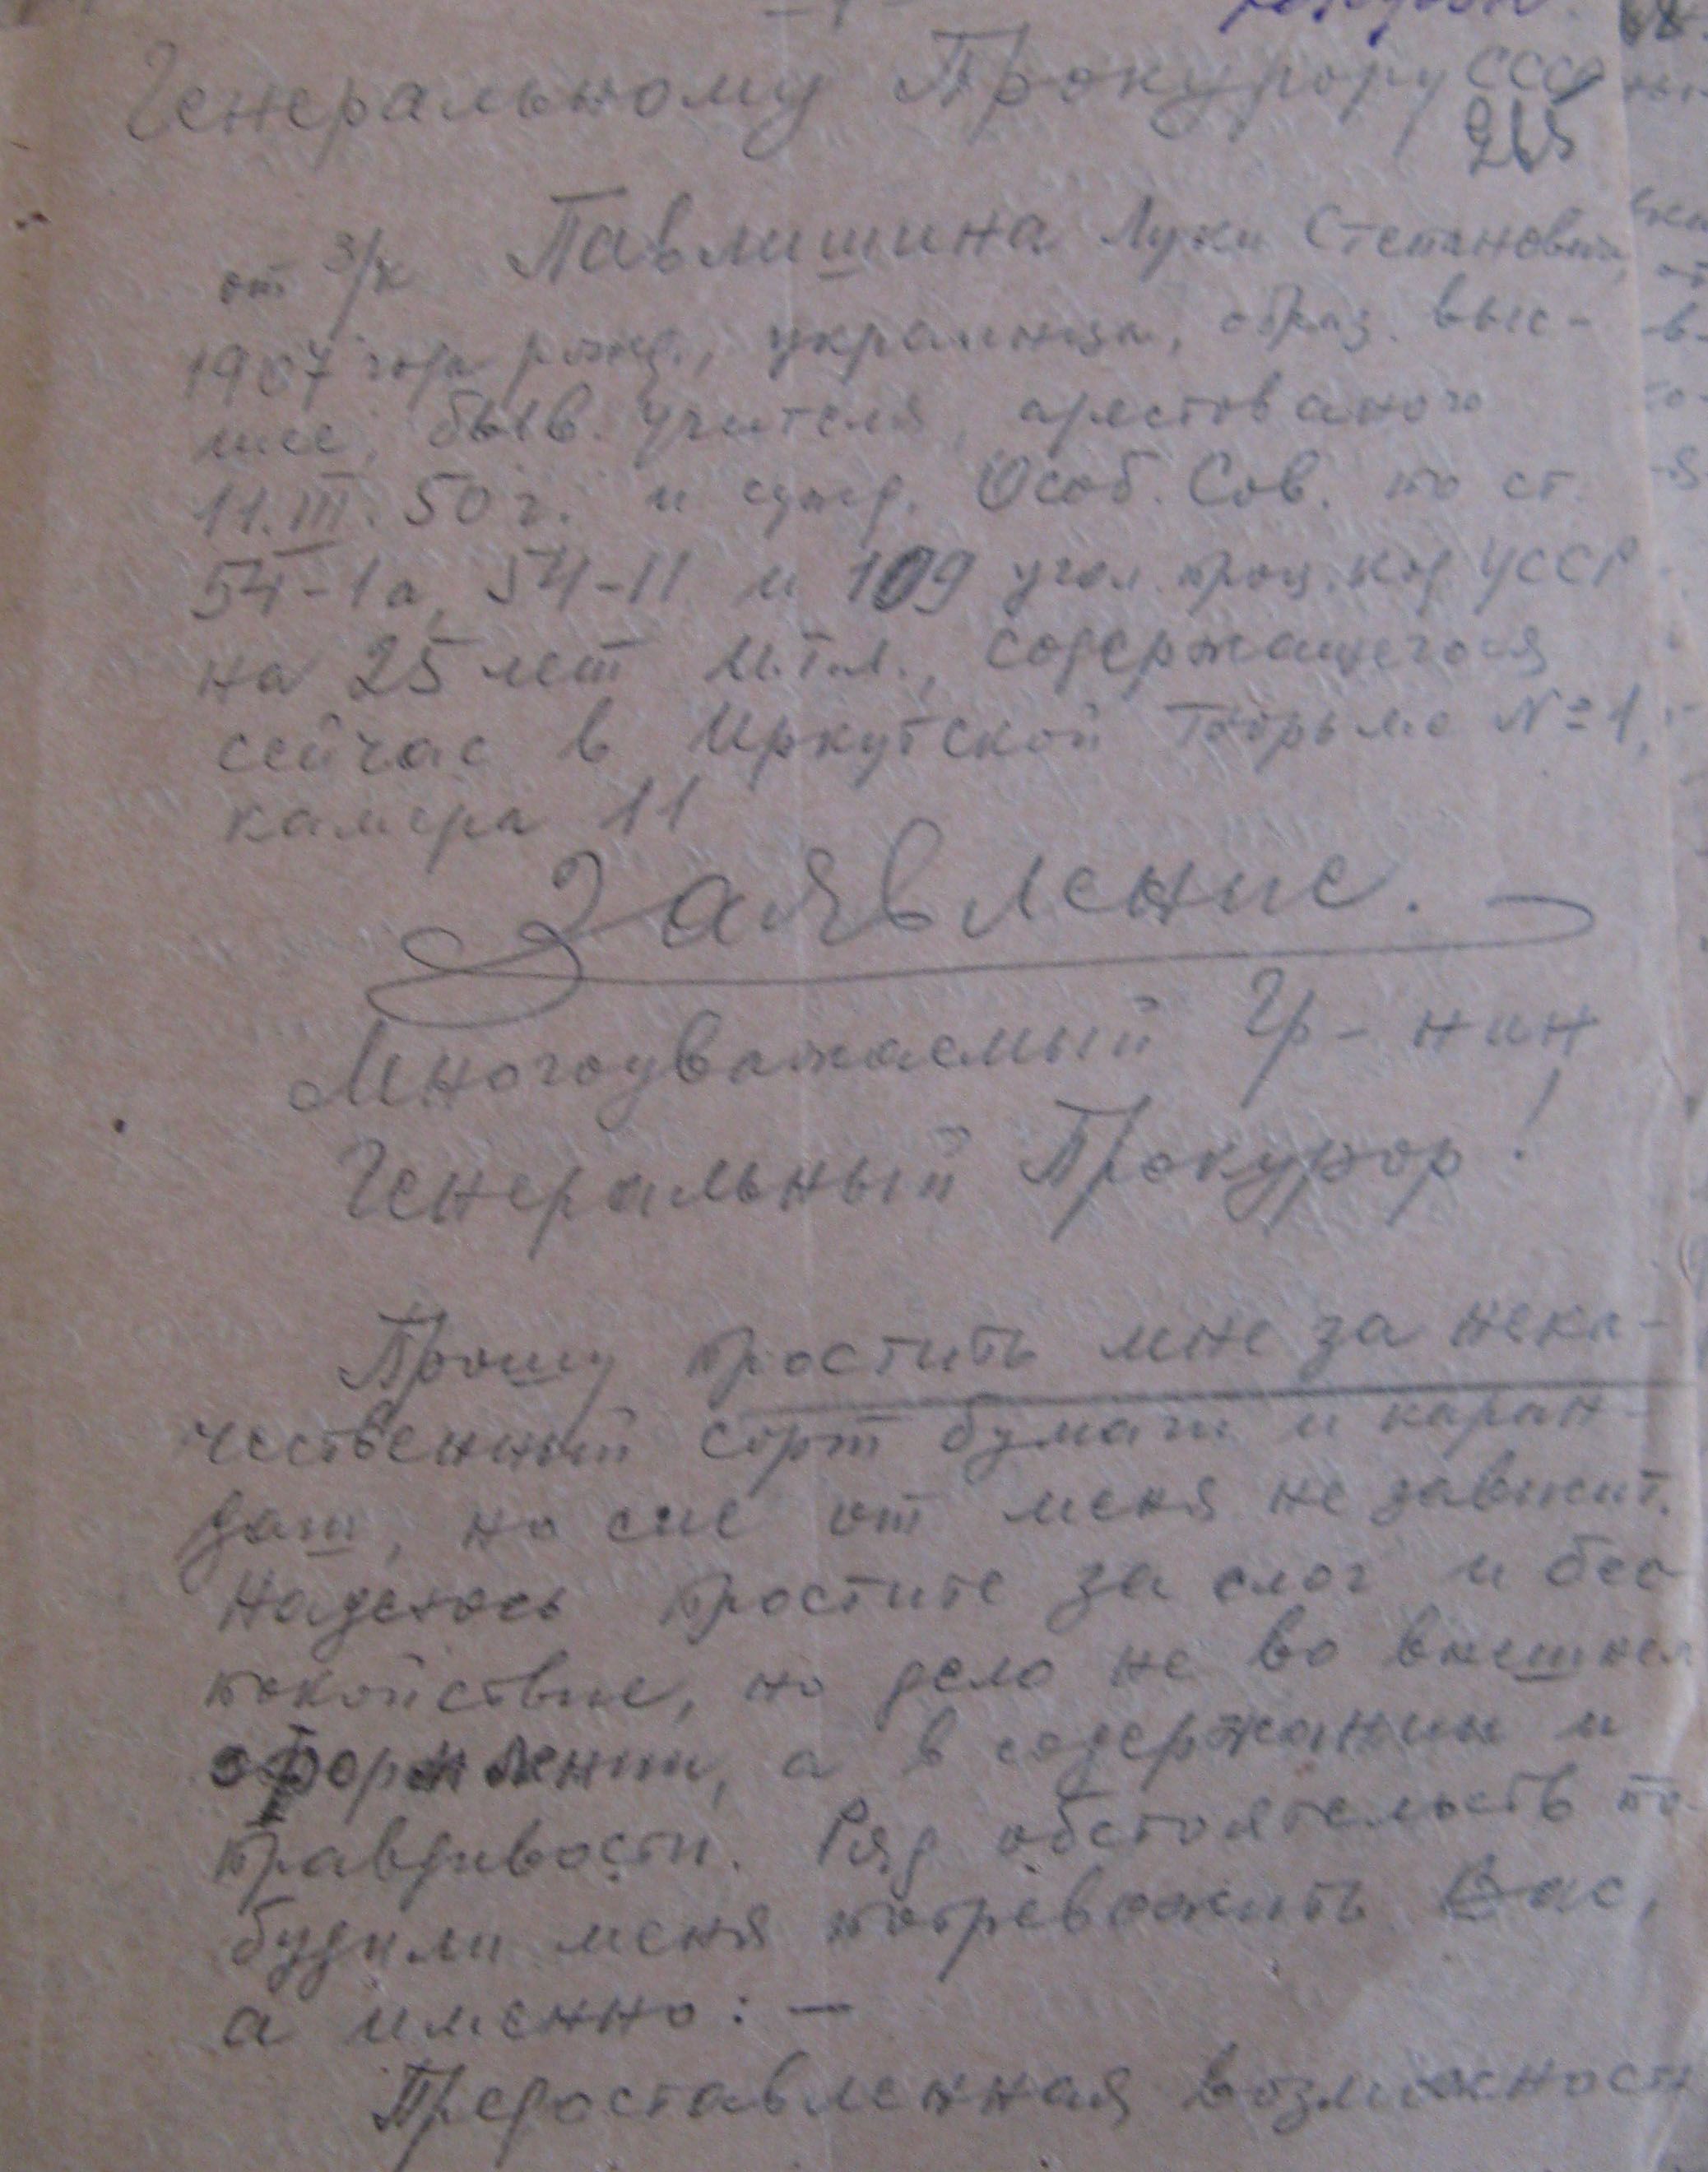 Генеральному Прокурору СССР
265
от з/к Павлишина Луки Степановича,
1907 года рожд., украинца, образ. выс-
шее, бывв. учителя, арестованого
11.III.50г. и сужд. Особ. Сов. по ст.
54-1а, 54-11 и 109 угол. проц. код УССР
на 25 лет И.Т.Л., содержащегося
сейчас в Иркутской Тюрьме №1,
камера 11
Заявление.
Многоуважаемый Гр-нин
Генеральный Прокурор!
Прошу простить мне за нека-
чественный сорт бумаги и каран-
даш, но сие от меня не зависит.
Надеюсь простите за слог и бес
покойствие, но дело не во внешнем
оформлении, а в содержании и
правдивости. Ряд обстоятельств по-
будили меня потревожить Вас,
а именно: —
Предоставленная возможность